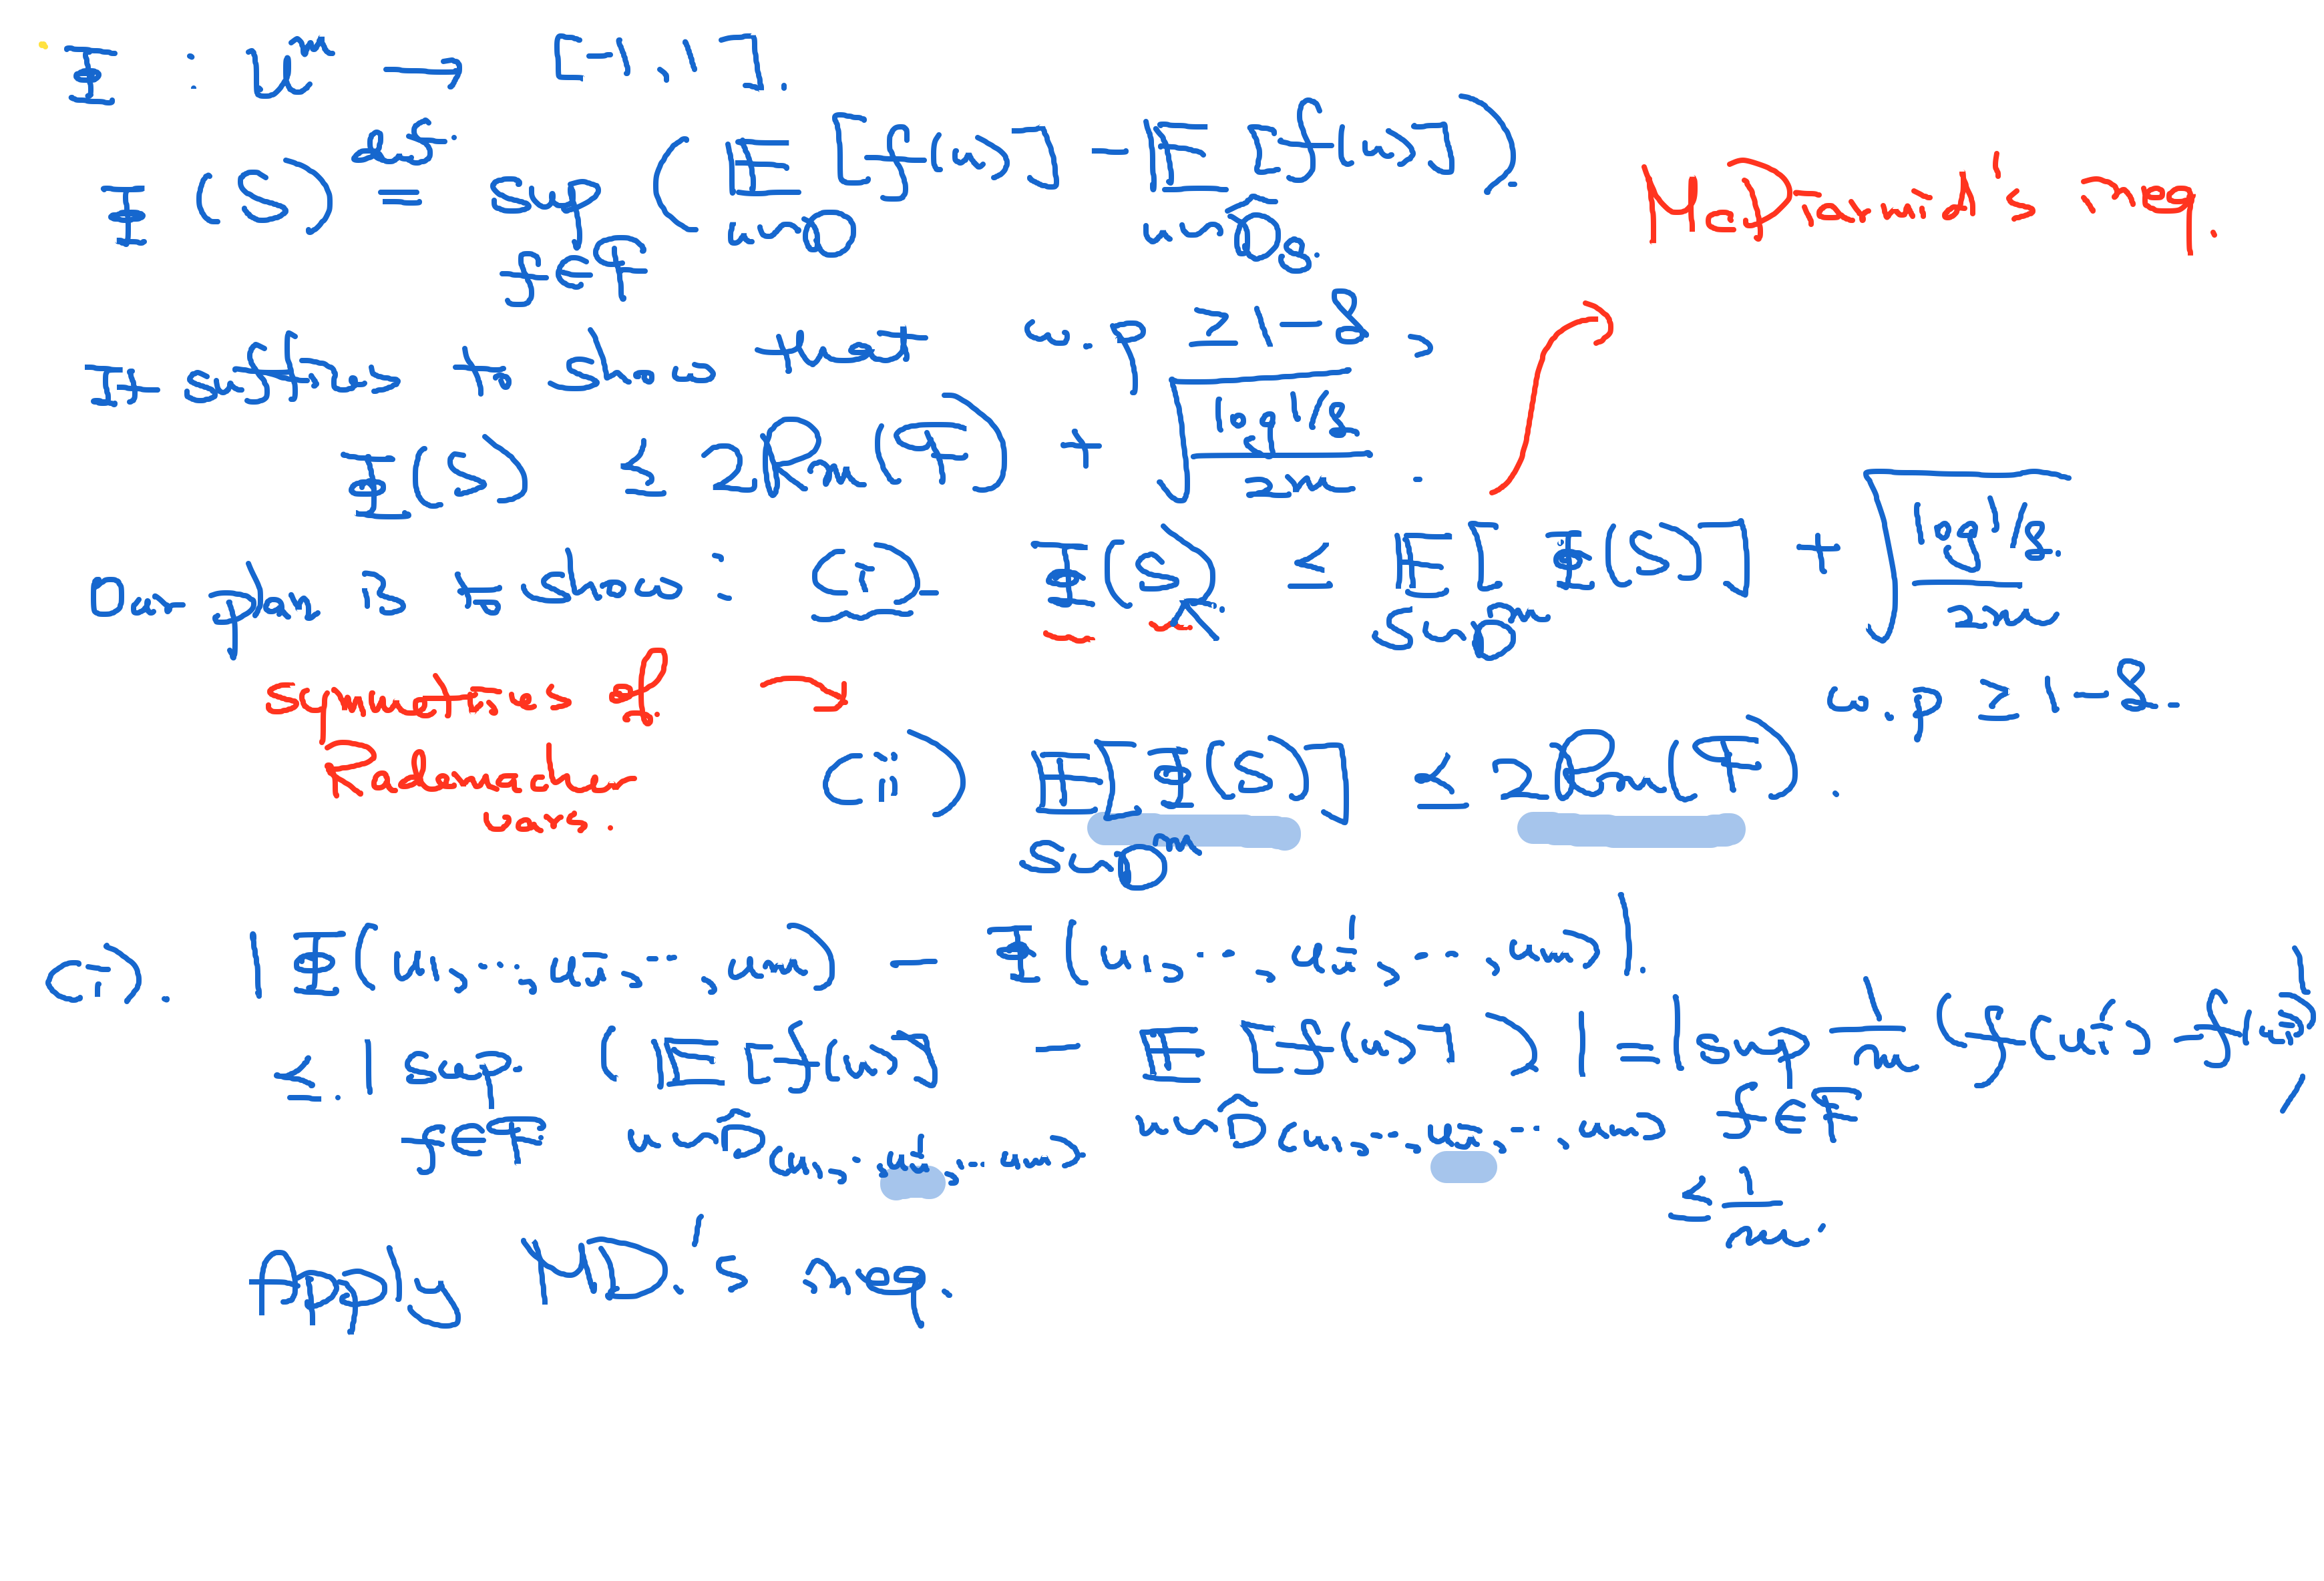 Φ : U^m → [-1, 1].
Φ(S) def.= sup_{f∈F} ( E_{u∼D} [f(u)] - E_{u∼D̂_S.} [f(u)] ).
McDiarmid's ineq.
It suffices to show that w.p ≥ 1-δ,
Φ(S) ≤ 2R_m(F) + √(log 1/δ / 2m).
Our plan is to show : (i). Φ(S) ≤ E_{S∼D^m} [Φ(S)] + √(log 1/δ. / 2m)
w.p ≥ 1-δ.
symmetries of.
Rademacher
vars.
(ii) E_{S∼D^m} [Φ(S)] ≤ 2R_m(F).
(i). | Φ(u₁, ..., uᵢ, ..., uₘ) - Φ(u₁, ..., uᵢ', ..., uₘ) |.
≤. | sup_{f∈F} ( E_{u∼D̂(u₁, ..uᵢ', ... uₘ)} [f(u)] - E_{u∼D̂(u₁, .., uᵢ, ..., uₘ)} [f(u)] ) | = | sup_{f∈F} 1/m (f(uᵢ') - f(uᵢ)) |
≤ 1/m.
Apply MD.'s ineq.